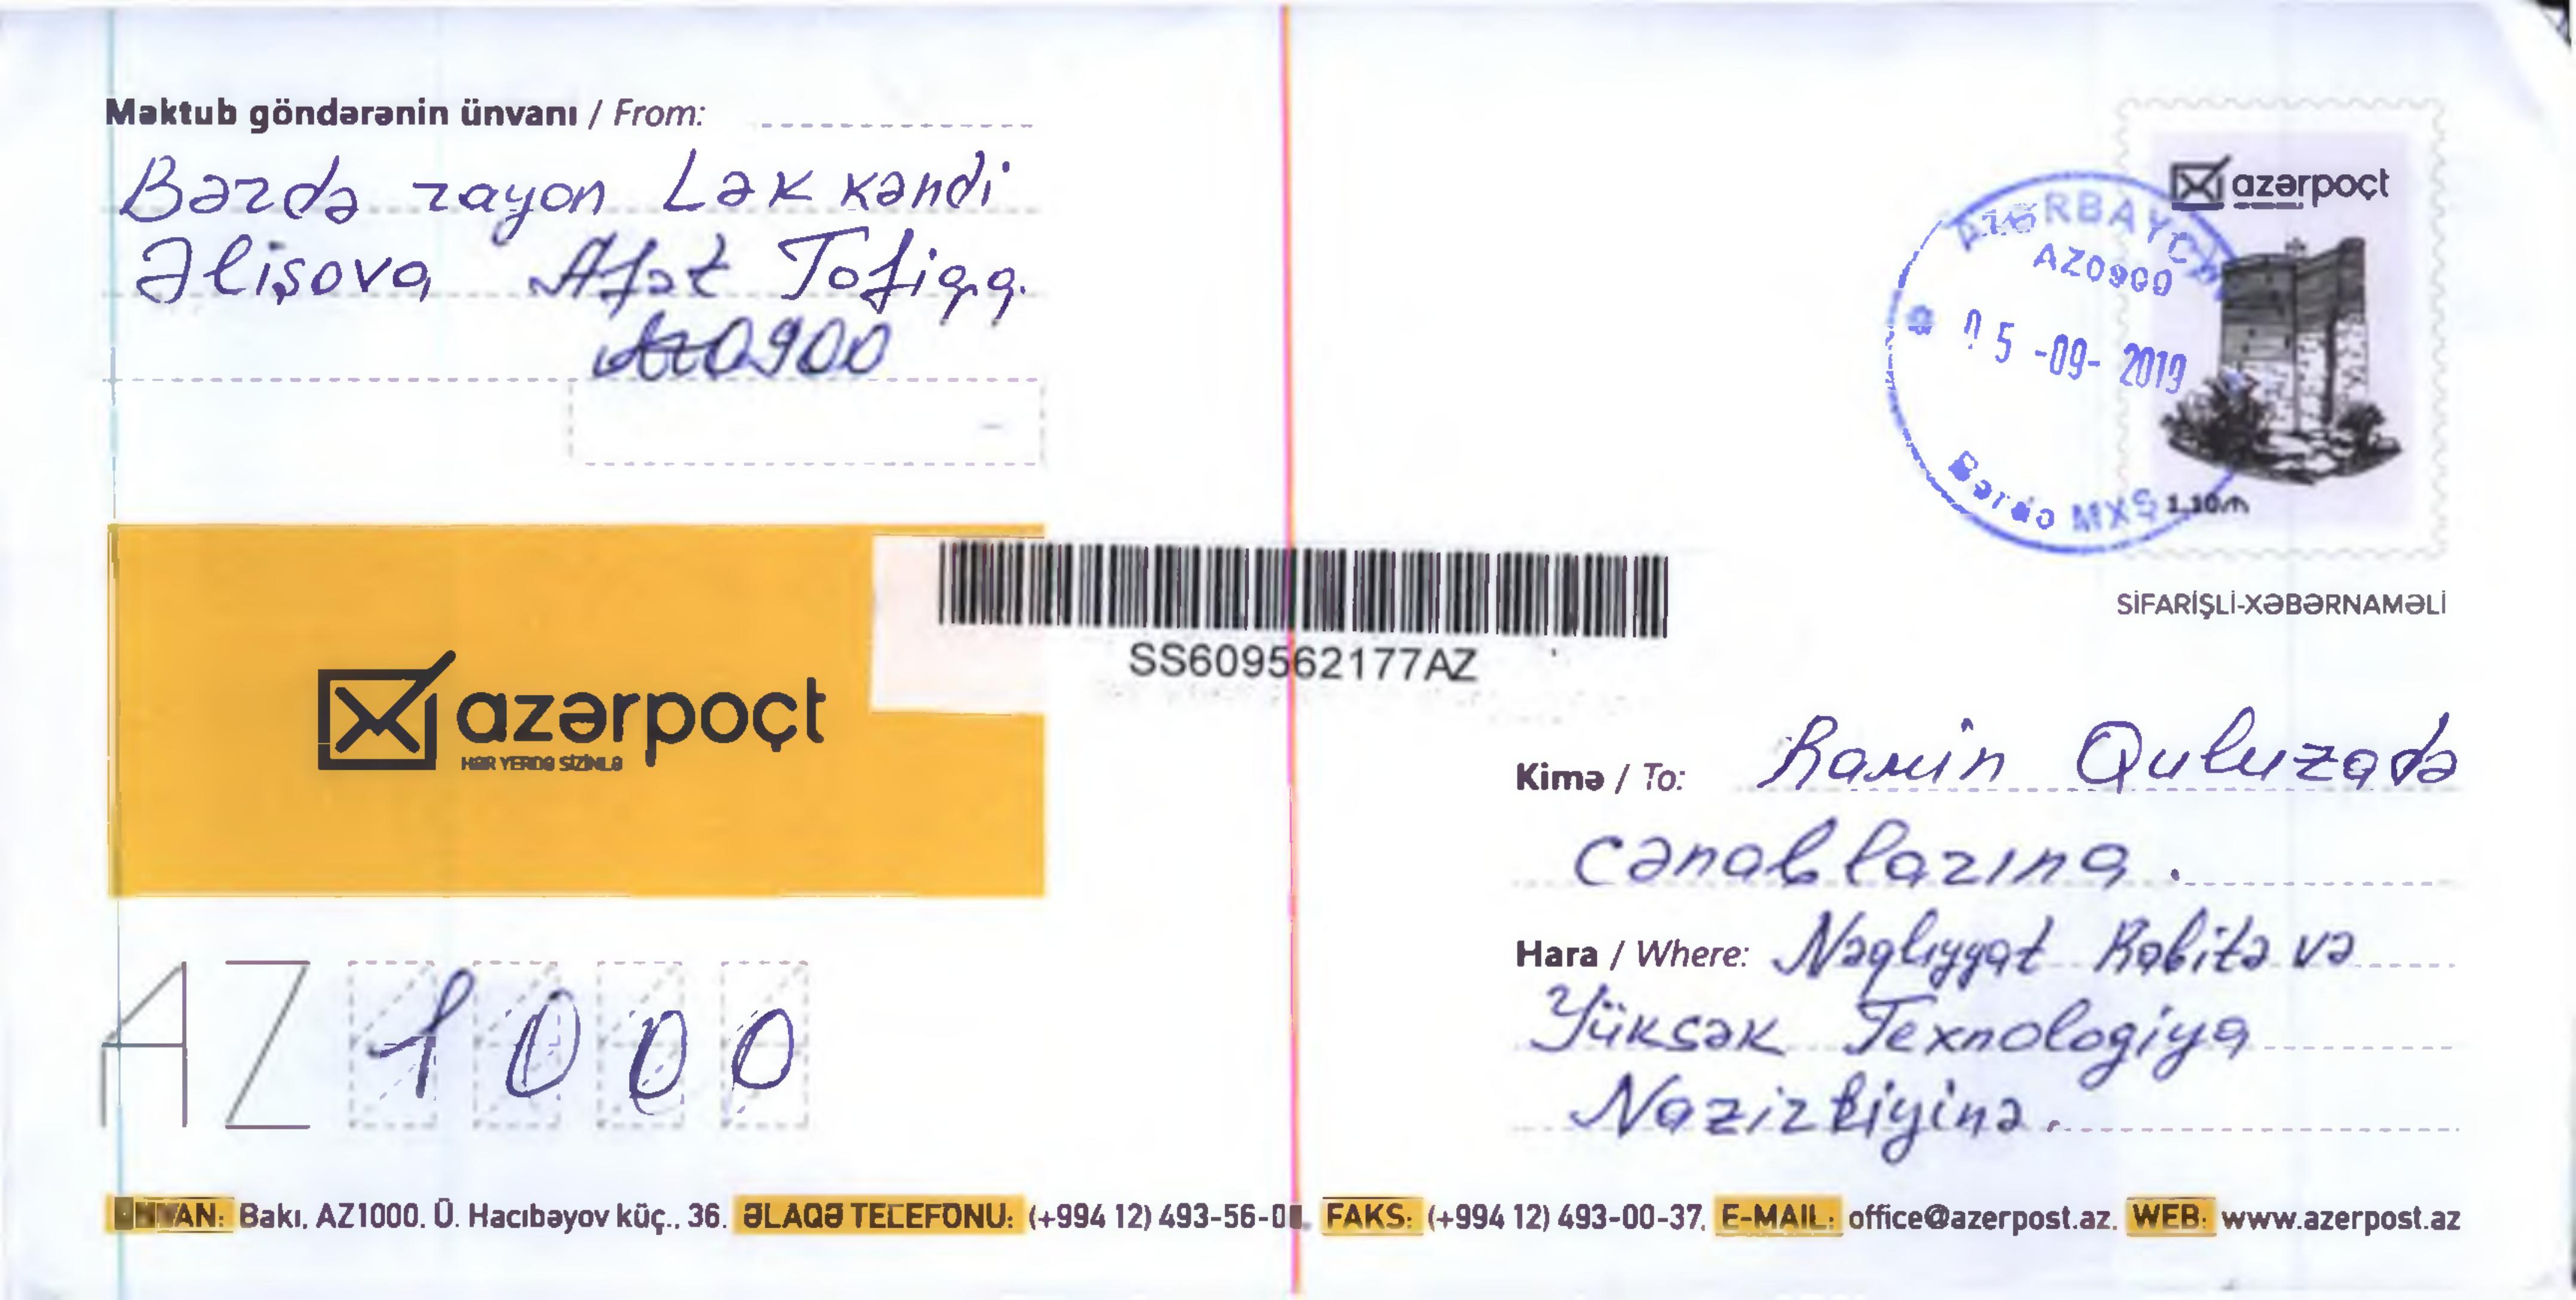 Məktub göndərənin ünvanı / From:
Bərdə rayon Lək kəndi
Əlişova Afət Tofiq q.
Az0900
azərpoçt
AZƏRBAYCAN
AZ0900
05-09-2019
Bərdə MXŞ
1.10m
SİFARİŞLİ-XƏBƏRNAMƏLİ
SS609562177AZ
azərpoçt
HƏR YERDƏ SİZİNLƏ
Kimə / To: Ramin Quluzadə
cənablarına.
Hara / Where: Nəqliyyat Rabitə və
Yüksək Texnologiya
Nazirliyinə.
AZ 1000
ÜNVAN: Bakı, AZ1000. Ü. Hacıbəyov küç., 36. ƏLAQƏ TELEFONU: (+994 12) 493-56-0 FAKS: (+994 12) 493-00-37, E-MAIL: office@azerpost.az, WEB: www.azerpost.az